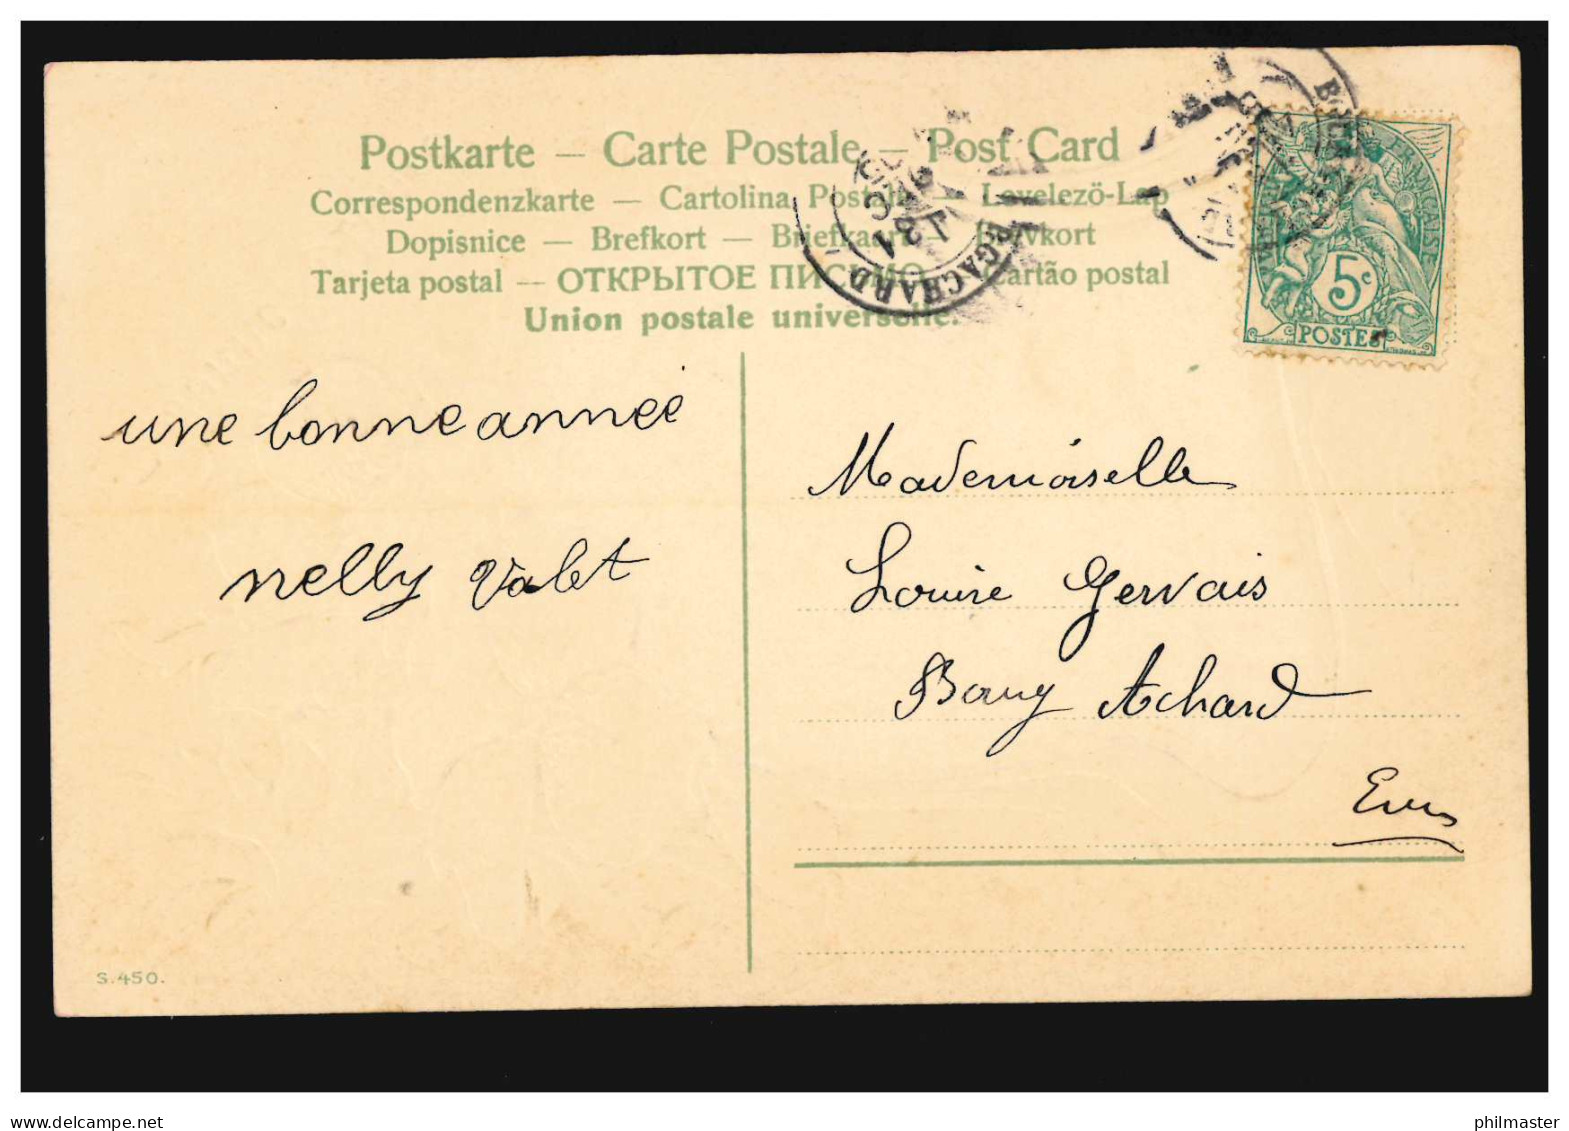 Postkarte — Carte Postale — Post Card
Correspondenzkarte — Cartolina Postale — Levelezö-Lap
Dopisnice — Brefkort — Briefkaart — Brevkort
Tarjeta postal — ОТКРЫТОЕ ПИСЬМО — Cartão postal
Union postale universelle.
RGACHARD
31
DEC
FRANÇAISE
5c
POSTES
une bonne année
nelly Valet
Mademoiselle
Louise Gervais
Bourg Achard
Eure
S.450.
delcampe.net
philmaster